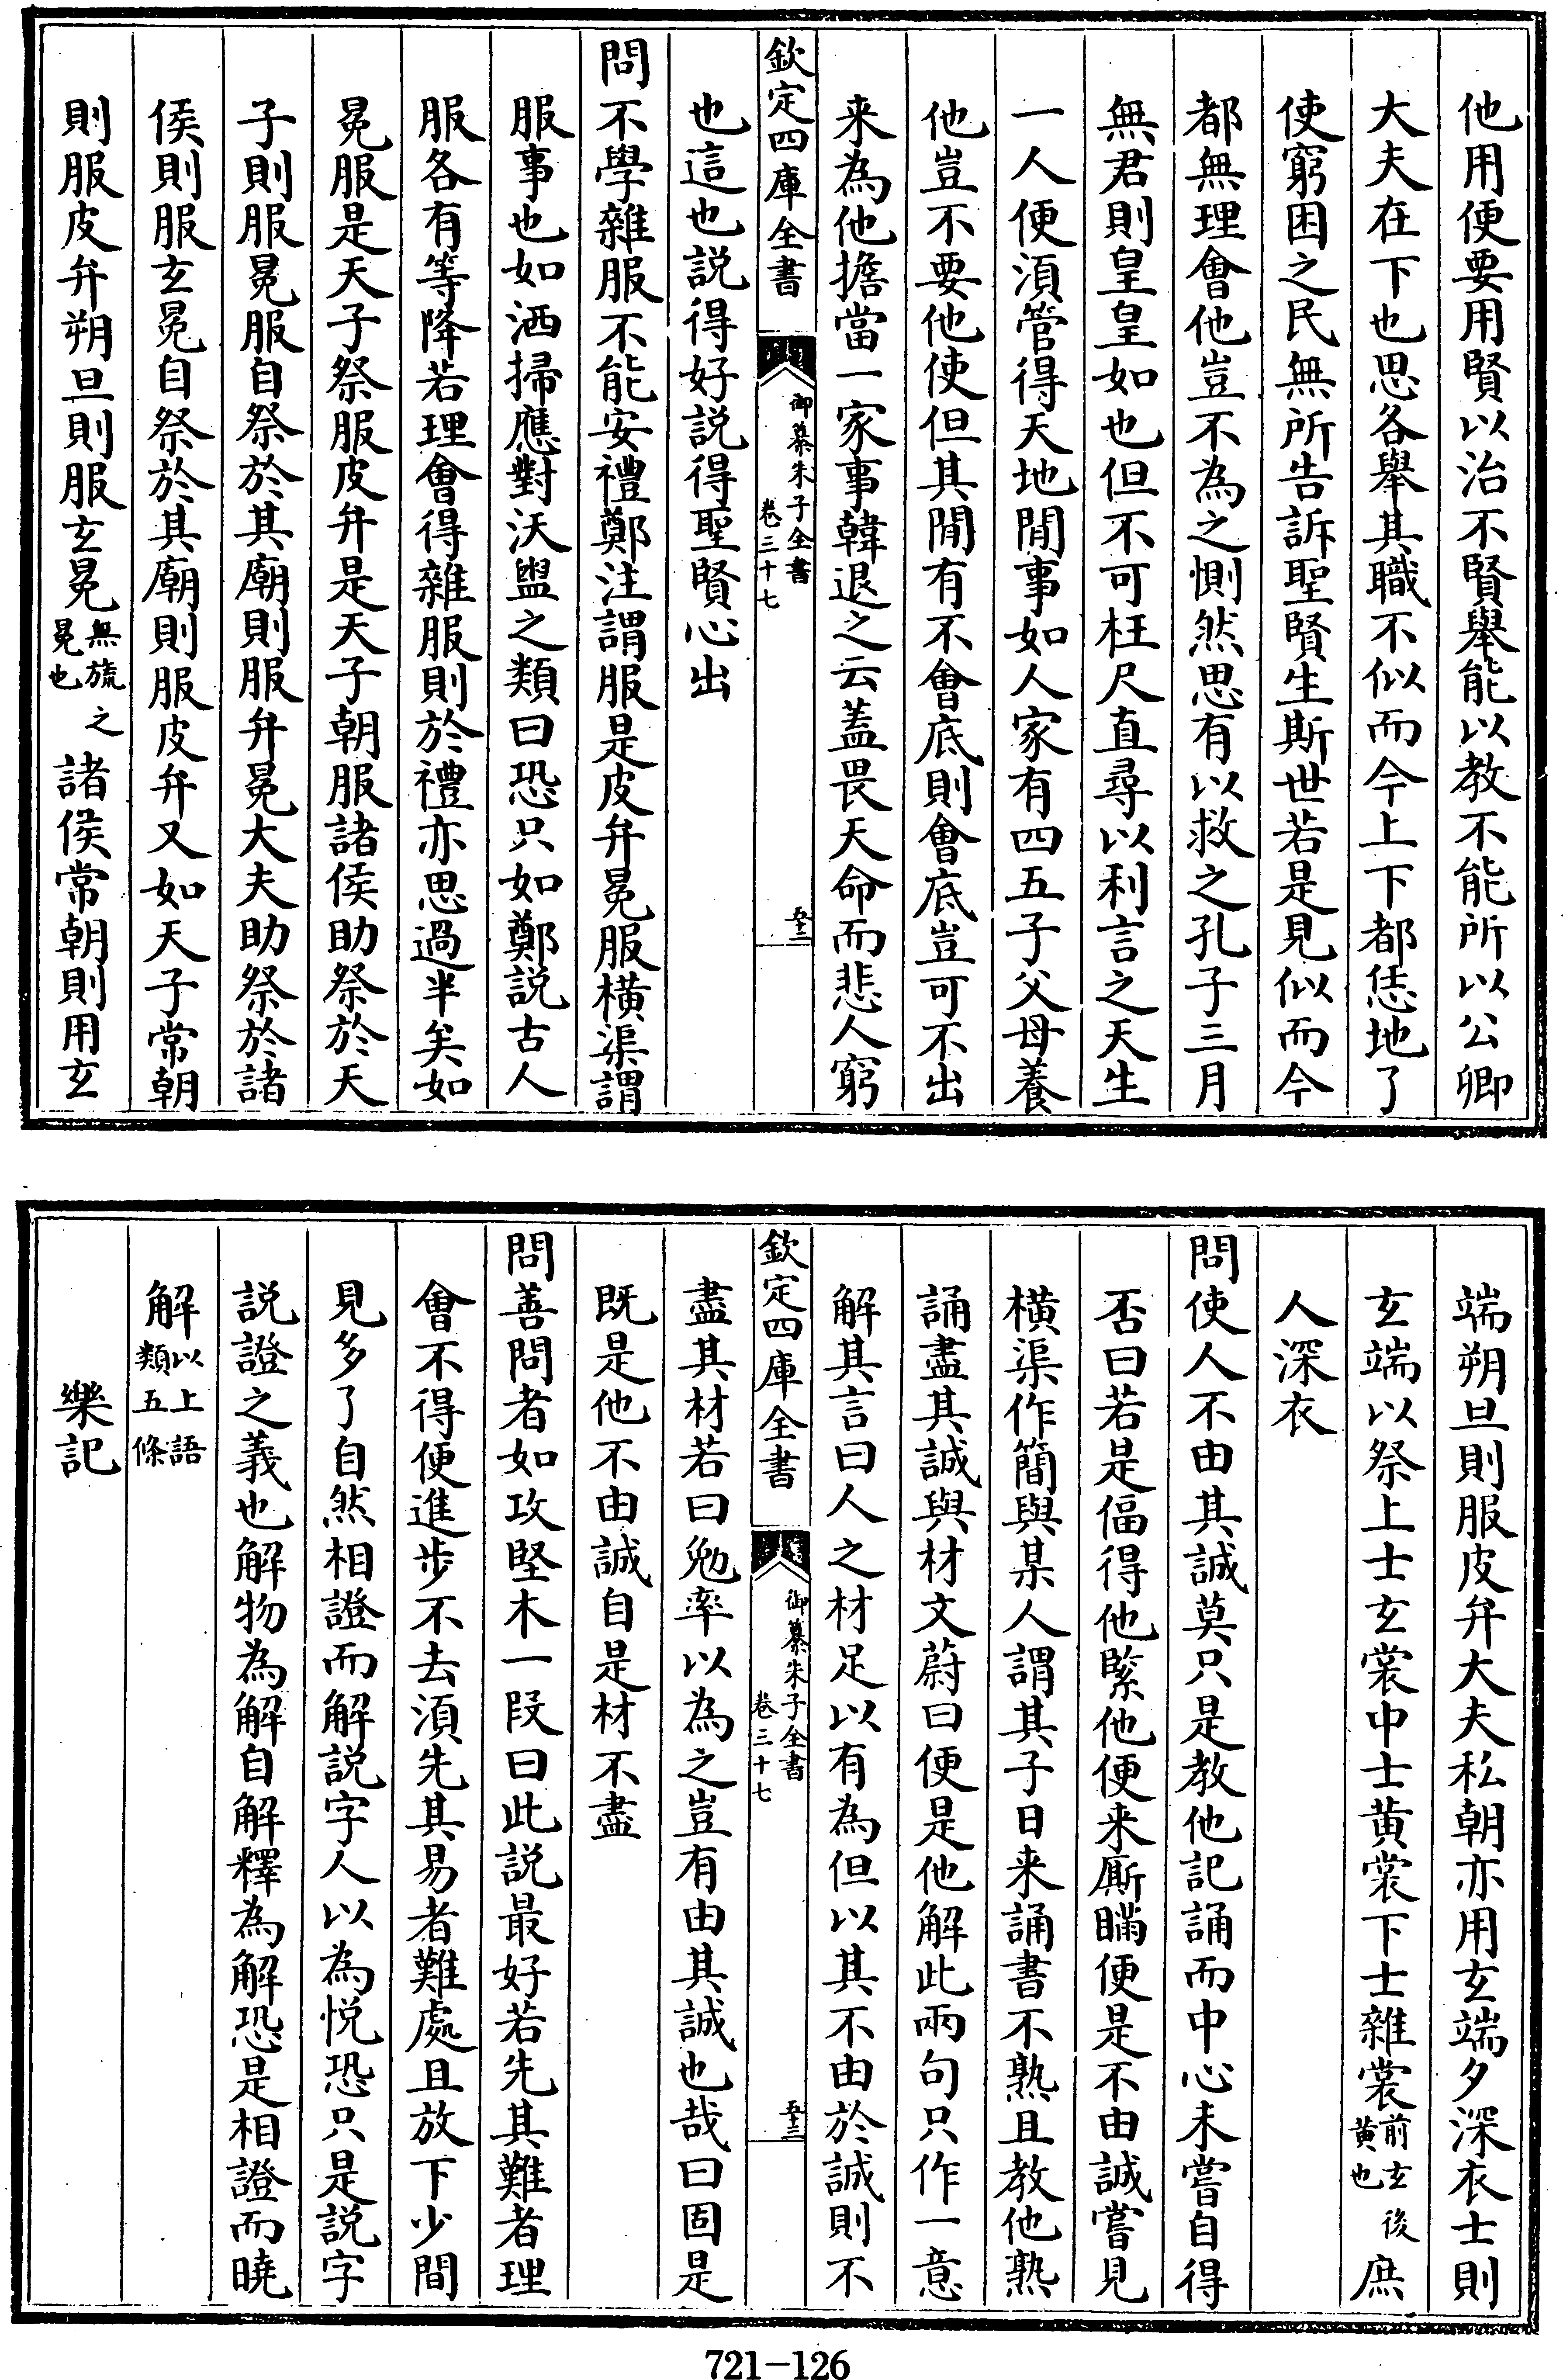 他用便要用賢以治不賢舉能以教不能所以公卿
大夫在下也思各舉其職不似而今上下都恁地了
使窮困之民無所告訴聖賢生斯世若是見似而今
都無理會他豈不為之惻然思有以救之孔子三月
無君則皇皇如也但不可枉尺直尋以利言之天生
一人便須管得天地間事如人家有四五子父母養
他豈不要他使但其間有不會底則會底豈可不出
来為他擔當一家事韓退之云蓋畏天命而悲人窮
欽定四庫全書
御纂朱子全書
卷三十七
五十二
也這也説得好説得聖賢心出
問不學雜服不能安禮鄭注謂服是皮弁冕服橫渠謂
服事也如洒掃應對沃盥之類曰恐只如鄭説古人
服各有等降若理會得雜服則於禮亦思過半矣如
冕服是天子祭服皮弁是天子朝服諸侯助祭於天
子則服冕服自祭於其廟則服弁冕大夫助祭於諸
侯則服玄冕自祭於其廟則服皮弁又如天子常朝
則服皮弁朔旦則服玄冕無旒之冕也諸侯常朝則用玄
端朔旦則服皮弁大夫私朝亦用玄端夕深衣士則
玄端以祭上士玄裳中士黄裳下士雜裳前玄後黄也庶
人深衣
問使人不由其誠莫只是教他記誦而中心未嘗自得
否曰若是偪得他緊他便来厮瞞便是不由誠嘗見
橫渠作簡與某人謂其子日来誦書不熟且教他熟
誦盡其誠與材文蔚曰便是他解此兩句只作一意
解其言曰人之材足以有為但以其不由於誠則不
欽定四庫全書
御纂朱子全書
卷三十七
五十三
盡其材若曰勉率以為之豈有由其誠也哉曰固是
既是他不由誠自是材不盡
問善問者如攻堅木一段曰此説最好若先其難者理
會不得便進步不去須先其易者難處且放下少間
見多了自然相證而解説字人以為悅恐只是説字
説證之義也解物為解自解釋為解恐是相證而曉
解以上語類五條
樂記
721-126